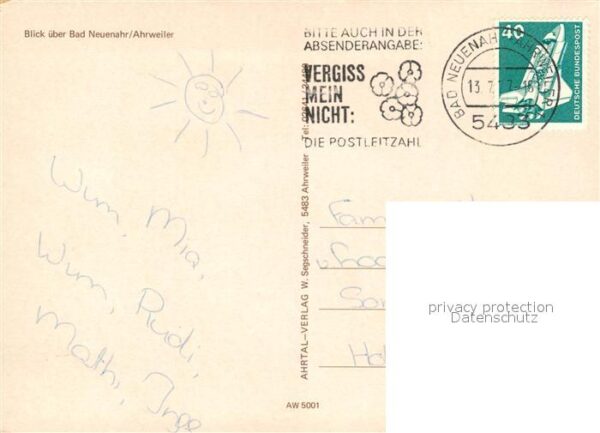 Blick über Bad Neuenahr/Ahrweiler
BITTE AUCH IN DER
ABSENDERANGABE:
VERGISS
MEIN
NICHT:
DIE POSTLEITZAHL
BAD NEUENAHR-AHRWEILER
13.7.
5483
40
DEUTSCHE BUNDESPOST
Wim, Mia,
Wim, Rudi,
Math, Inge
AHRTAL–VERLAG W. Segschneider, 5483 Ahrweiler
Fam
privacy protection
Datenschutz
AW 5001